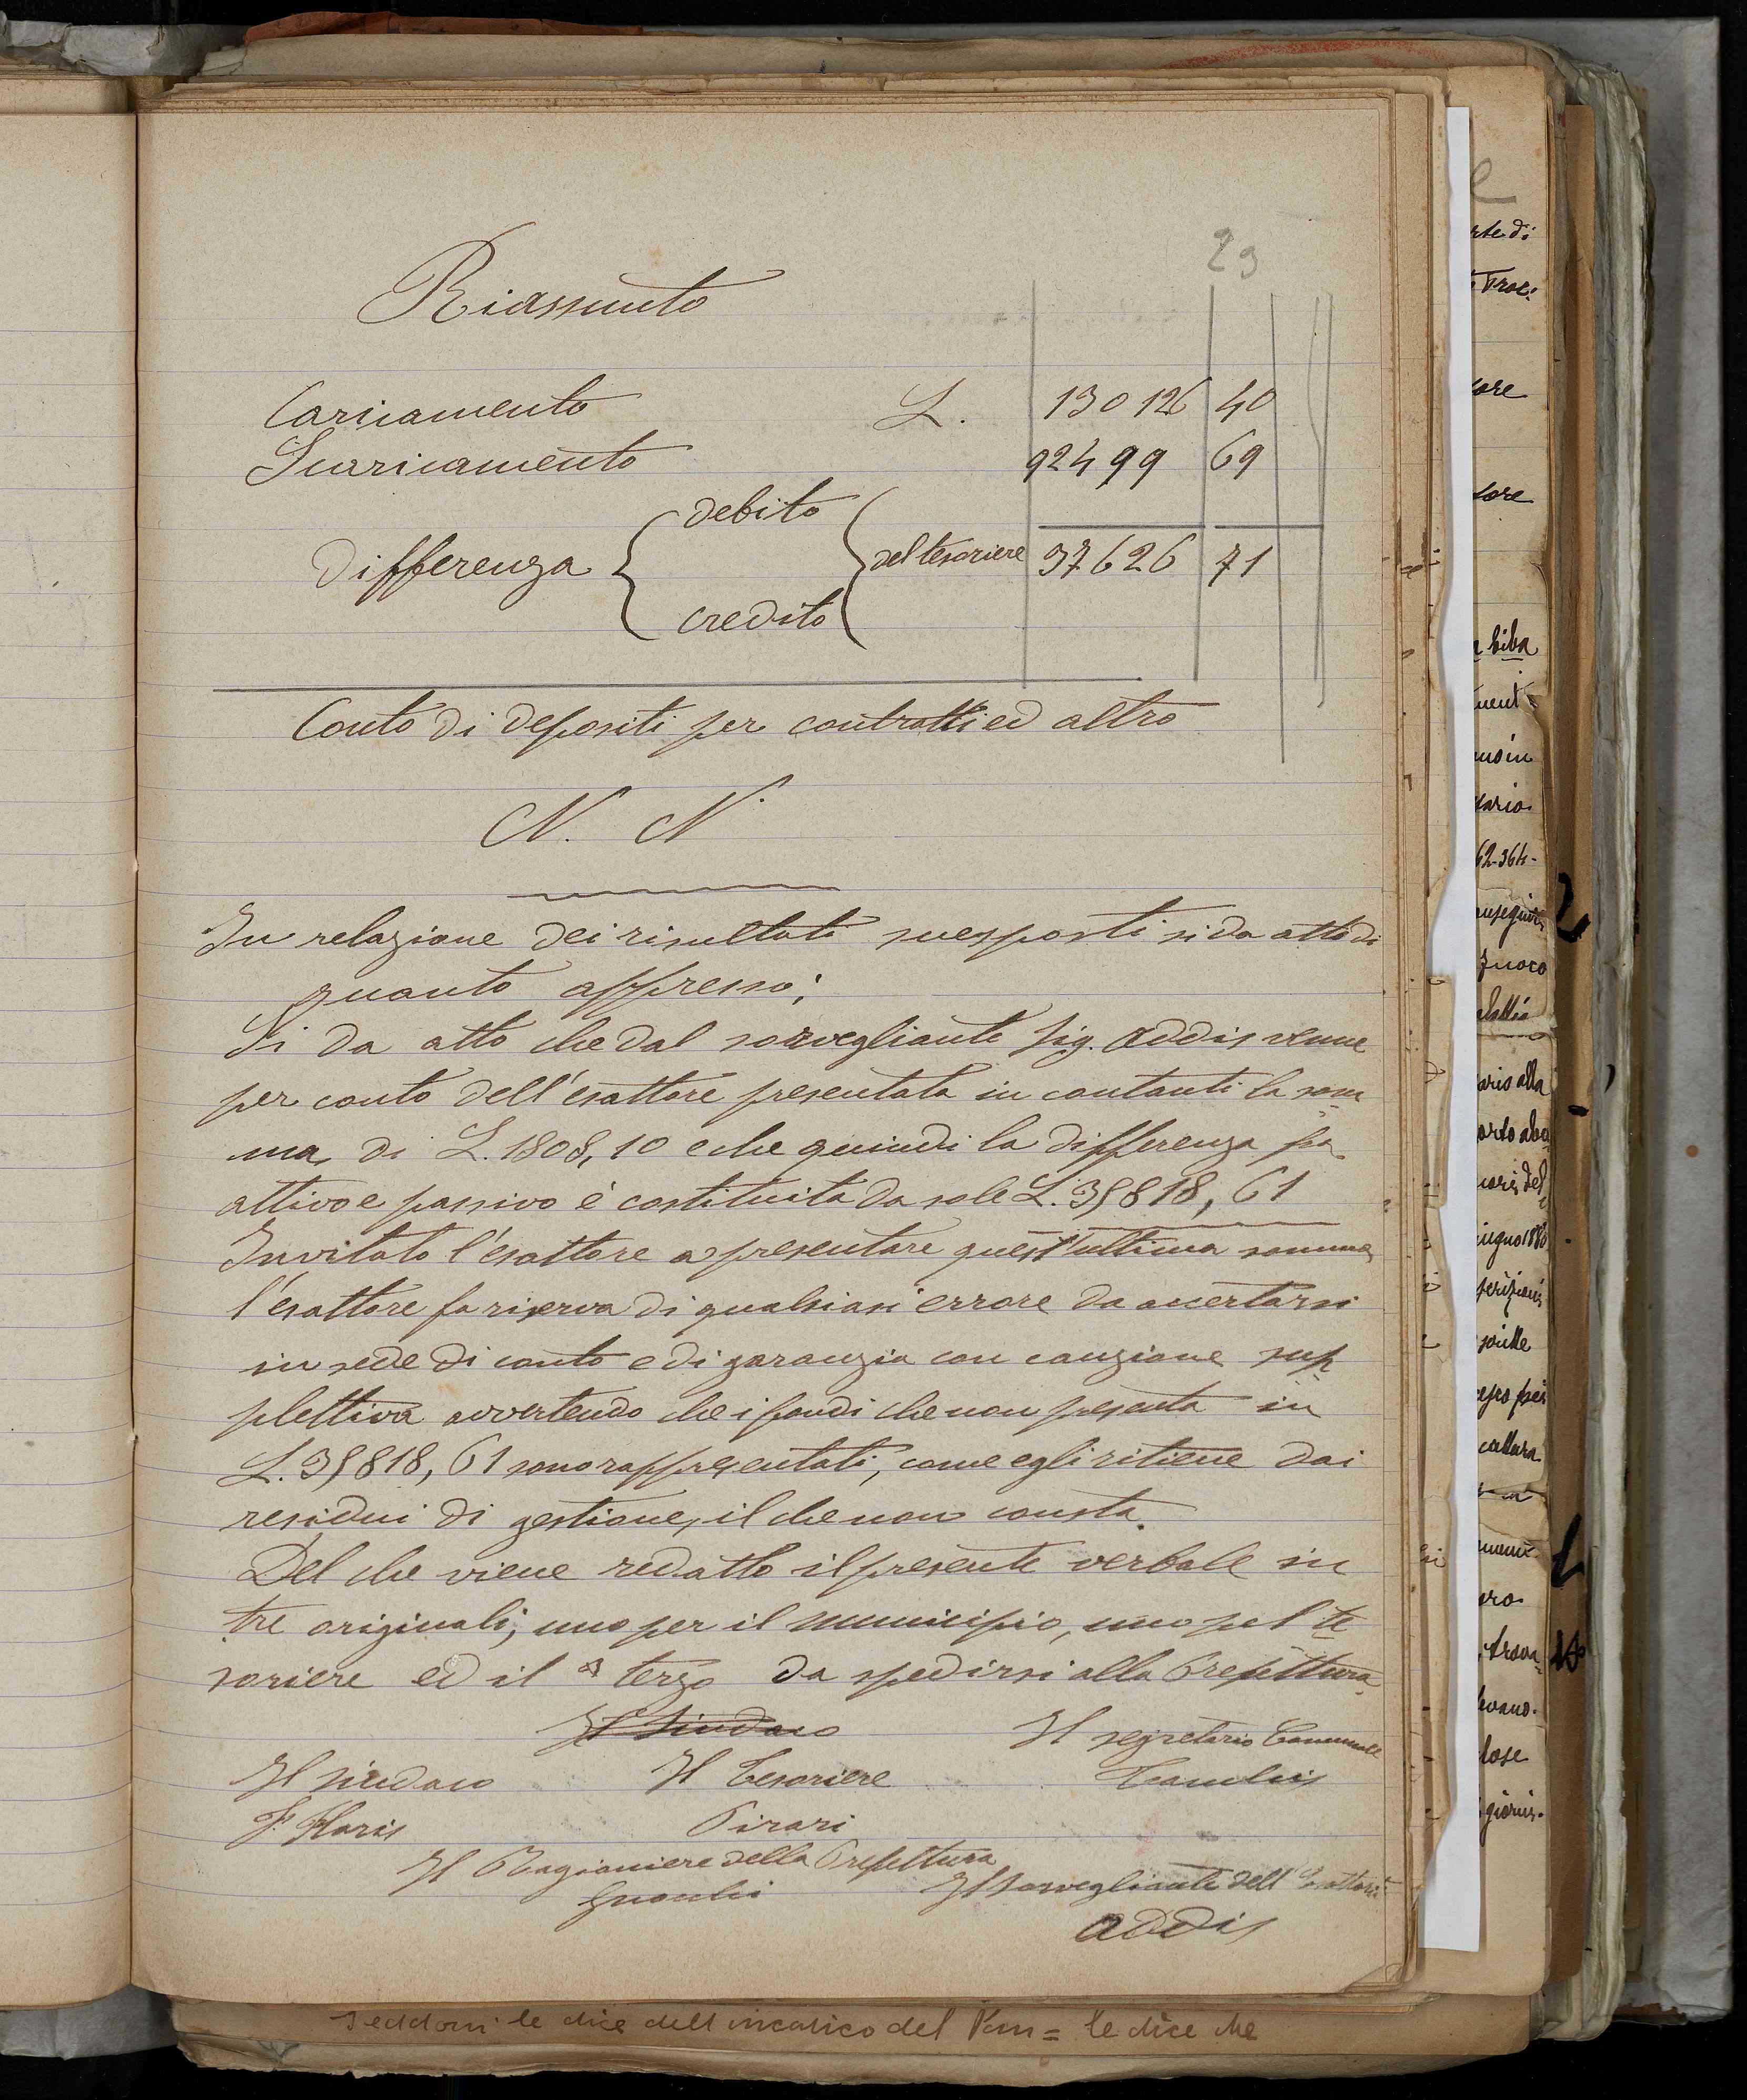 29
Riassunto
Caricamento L. 130126 40
Scaricamento 92499 69
debito
differenza { } del tesoriere 37626 71
credito
Conto di depositi per contratti ed altro
N. N.
In relazione dei risultati suesposti si da atto di
quanto appresso;
Si da atto che dal sorvegliante Sig. Addis venne
per conto dell'esattore presentata in contanti la som
ma di L. 1808,10 e che quindi la differenza fra
attivo e passivo è costituita da sole L. 35818,61
Invitato l'esattore a presentare quest'ultima somma
l'esattore fa riserva di qualsiasi errore da accertarsi
in sede di conto e di garanzia con cauzione sup
plettiva avvertendo che i fondi che non presenta in
L. 35818,61 sono rappresentati, come egli ritiene dai
residui di gestione, il che non consta.
Del che viene redatto il presente verbale in
tre originali; uno per il municipio, uno pel te
soriere ed il terzo da spedirsi alla Prefettura
Il Sindaco Il segretario Comunale
Il sindaco Il Tesoriere
F. Floris Pirari
Il Ragioniere della Prefettura
Il Sorvegliante dell'Esattoria
Addis
rte di
tore
tore
a biba
ario.
62-364-
fuoco
aris alla
iugno 1880
cattura
vano.
giorni.
le dice dell incarico del Pm = le dice che